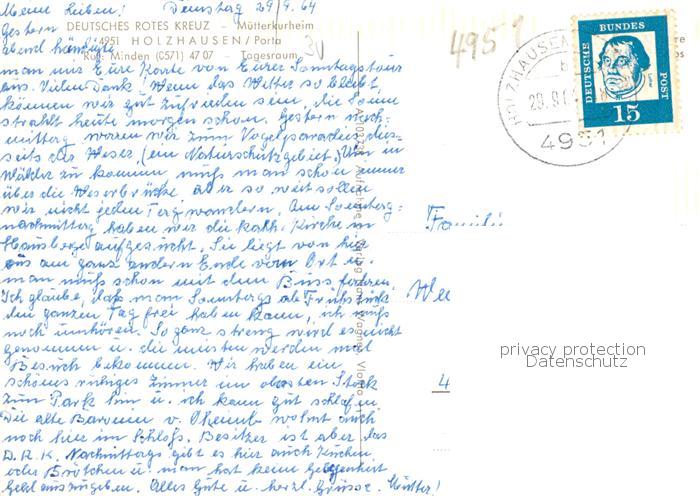 Meine Lieben! Dienstag 29/9.64
DEUTSCHES ROTES KREUZ - Mütterkurheim
4951 HOLZHAUSEN/Porta
Ruf: Minden (0571) 47 07 - Tagesraum
Gestern
abend händigte
man uns Eure Karte von Eurer Sonntagstour
aus. Vielen Dank! Wenn das Wetter so bleibt,
können wir gut zufrieden sein, die Sonne
strahlt heute morgen schon. Gestern nach-
mittag waren wir zum Vogelparadies dies-
seits der Weser, (ein Naturschutzgebiet.) Um in
Wälder zu kommen, muß man schon immer
über die Weserbrücke, aber so weit sollen
wir nicht jeden Tag wandern. Am Sonntag-
nachmittag haben wir die kath. Kirche in
Hausberge aufgesucht. Sie liegt von hier
aus am ganz andern Ende vom Ort u.
man muß schon mit dem Buss fahren.
Ich glaube, daß man Sonntags als Frühstück
den ganzen Tag frei haben kann, ich muß
noch umhören. So ganz streng wird es nicht
genommen u. die meisten werden mal
Besuch bekommen. Wir haben ein
schönes ruhiges Zimmer im obersten Stock
zum Park hin u. ich kann gut schlafen
Die alte Baronin v. Oheimb wohnt auch
noch hier im Schloß. Besitzer ist aber das
D.R.K. Nachmittags gibt es hier auch Kuchen
oder Brötchen u. man hat keine Gelegenheit
Geld auszugeben. Alles Gute u. herzl. Grüsse. Mutter!
4951
HOLZHAUSEN
4951
DEUTSCHE BUNDES POST
15
Famili
We
4
privacy protection
Datenschutz